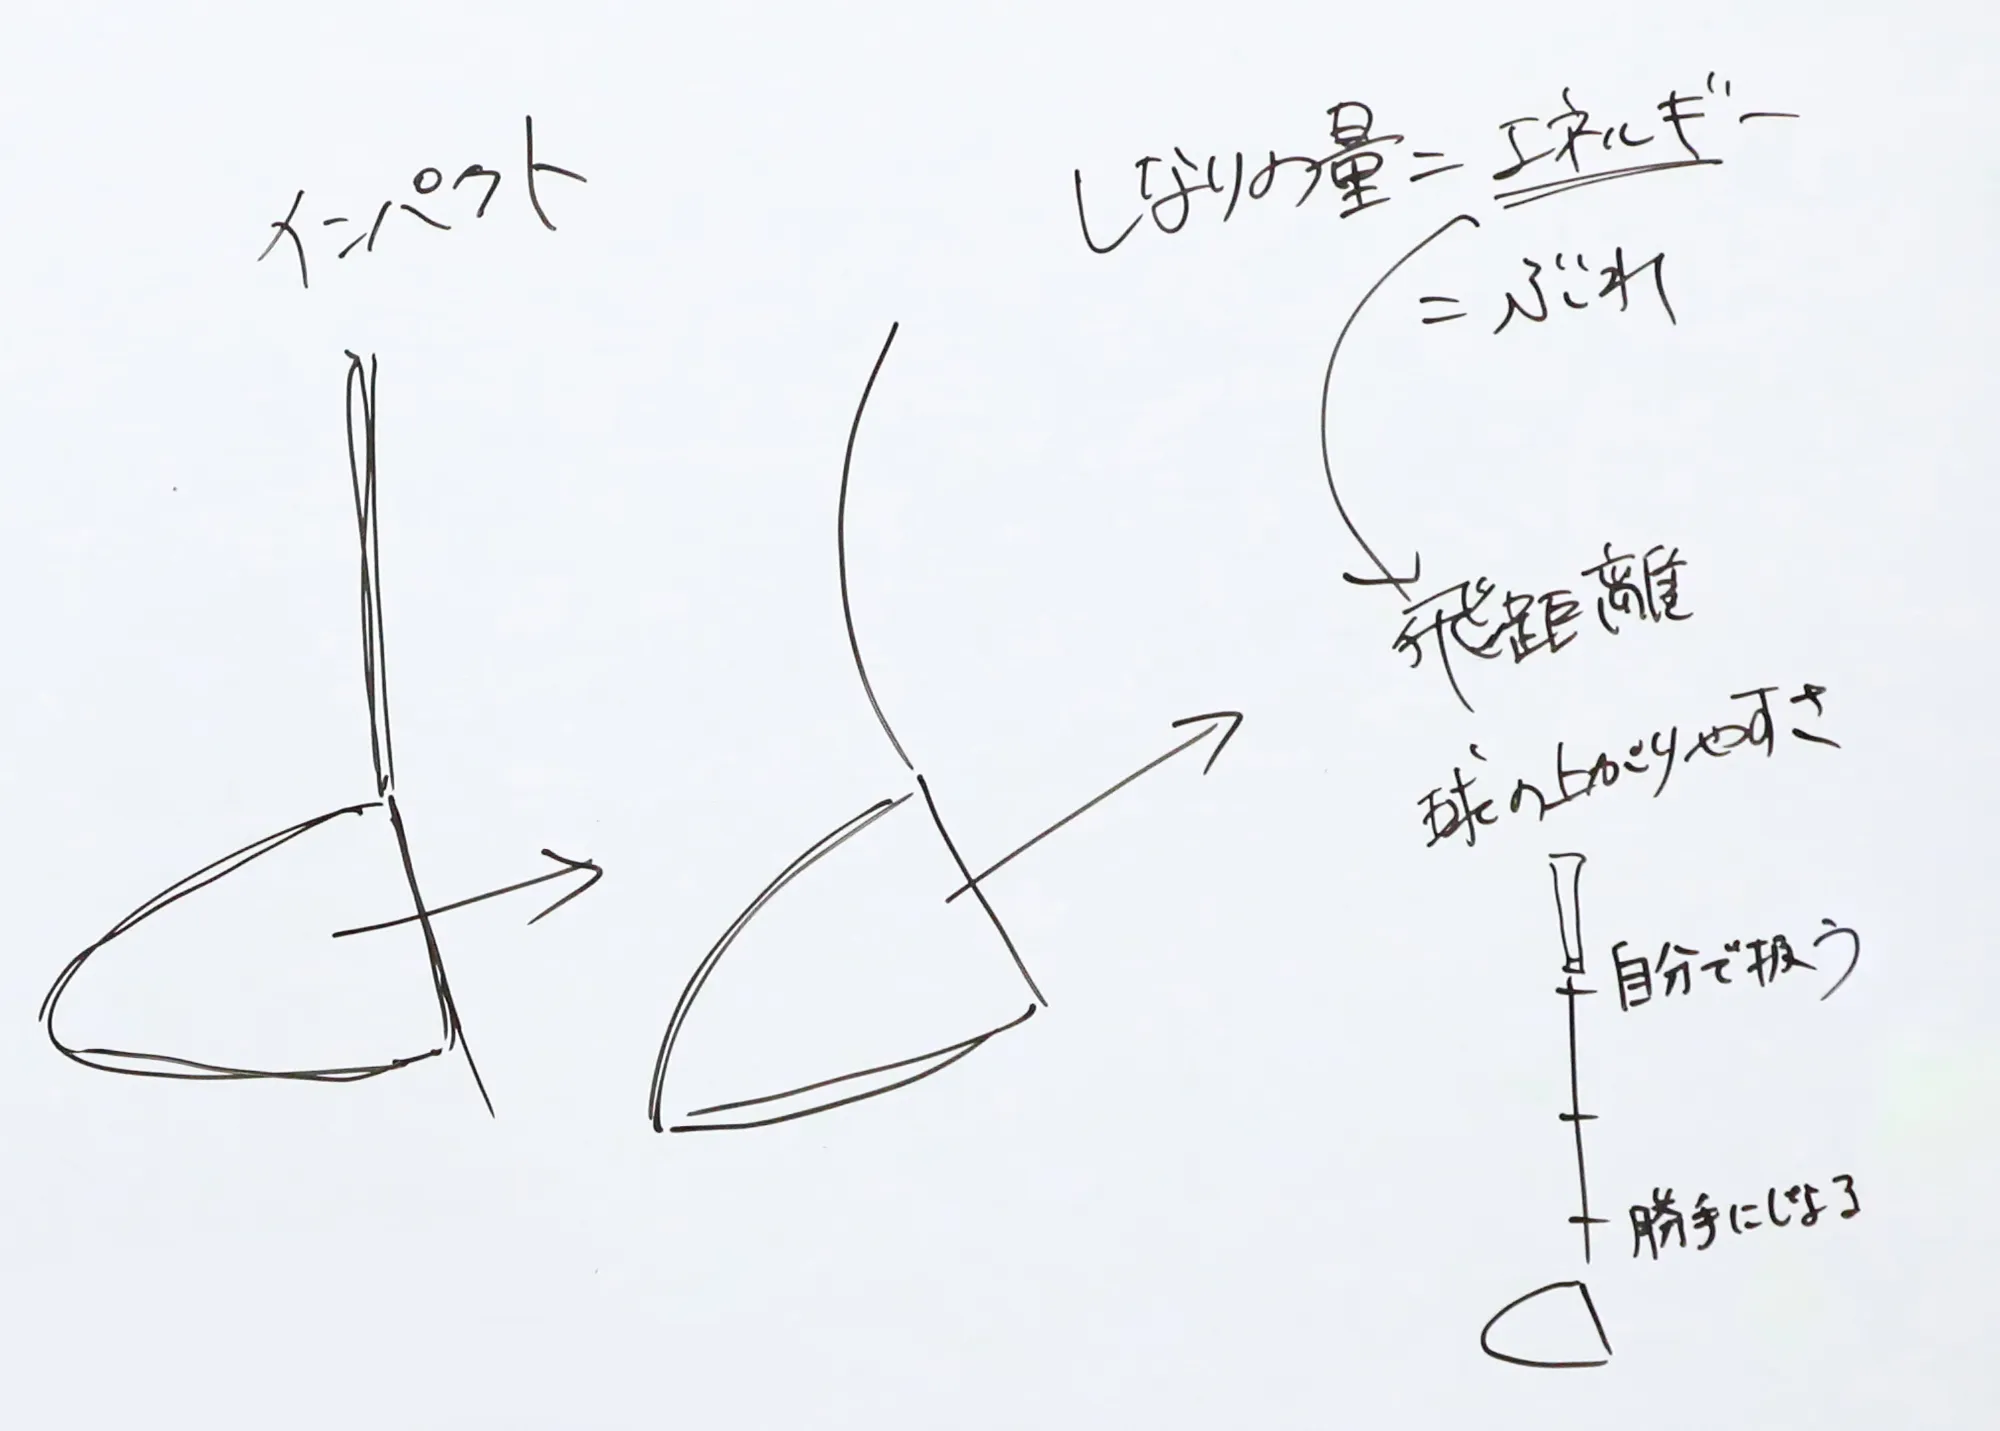 インパクト
しなりの量=エネルギー
=ぶれ
飛距離
球の上がりやすさ
自分で扱う
勝手にしなる